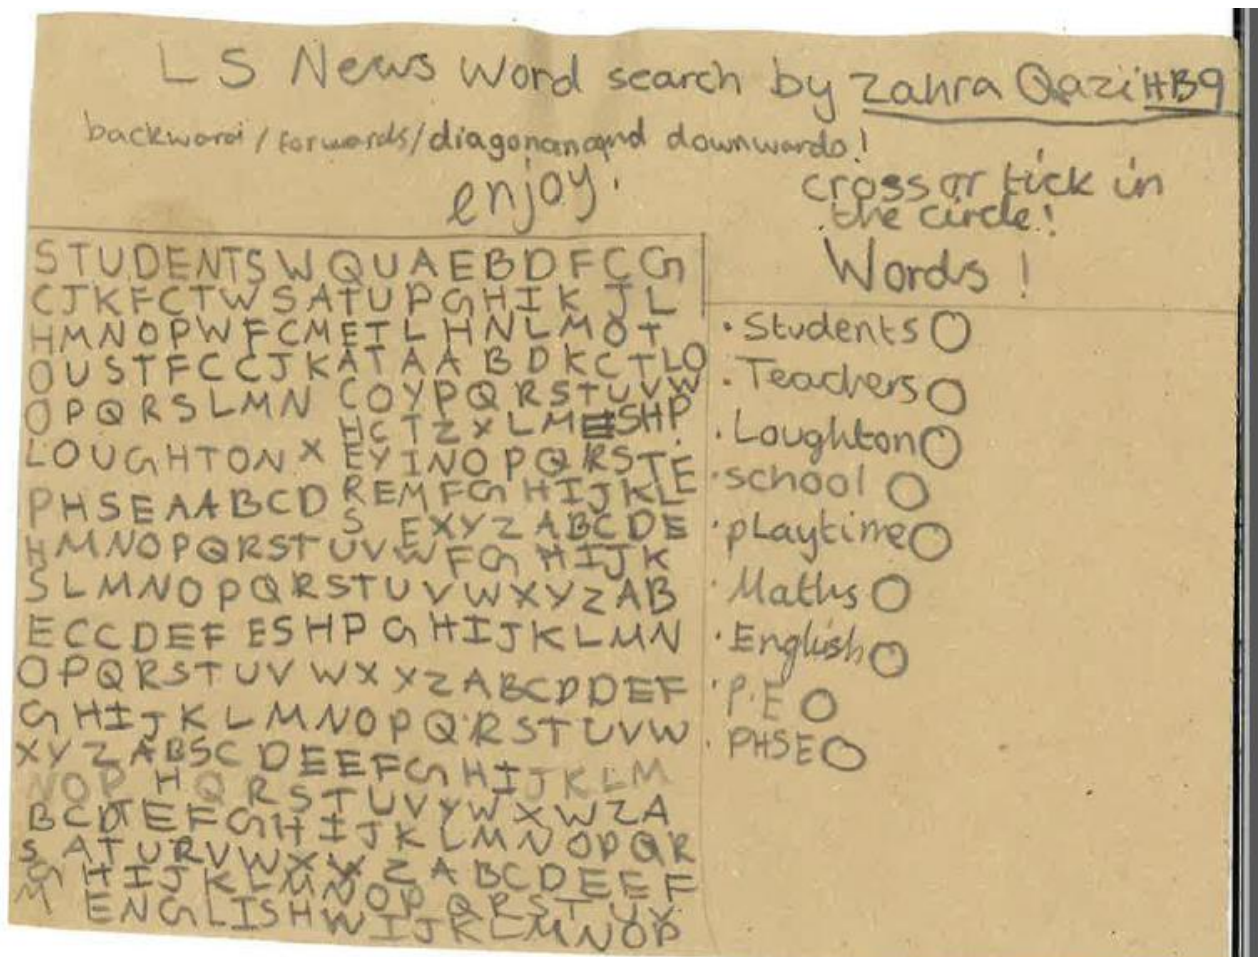 LS News Word search by Zahra Qazi HB9
backward/forwards/diagonan and downwards!
enjoy!
cross or tick in
the circle!
Words!
STUDENTSWQUAEBDFCG
CJKFCTWSATUPGHIKJL
HMNOPWFCMETLHNLMOT
OUSTFCCJKATAABDKCTLO
OPQRSLMN COYPQRSTUVW
HCTZXLMESHP
LOUGHTONXEYINOPQRSTE
PHSEAABCDREMFGHIJKLE
S EXYZABCDE
HMNOPQRSTUVWFGHIJK
SLMNOPQRSTUVWXYZAB
ECCDEFESHPGHIJKLMN
OPQRSTUVWXXZABCDDEF
GHIJKLMNOPQRSTUVW
XYZABSCDEEFGHIJKLM
NOP HQRSTUVYWXWZA
BCDTEFGHIJKLMNOPQR
SATURVWXYZABCDEEF
GHIJKLMNOPQRSTUV
M ENGLISHWIJKLMNOP
·Students
·Teachers
·Loughton
·school
·playtime
·Maths
·English
·P.E
·PHSE